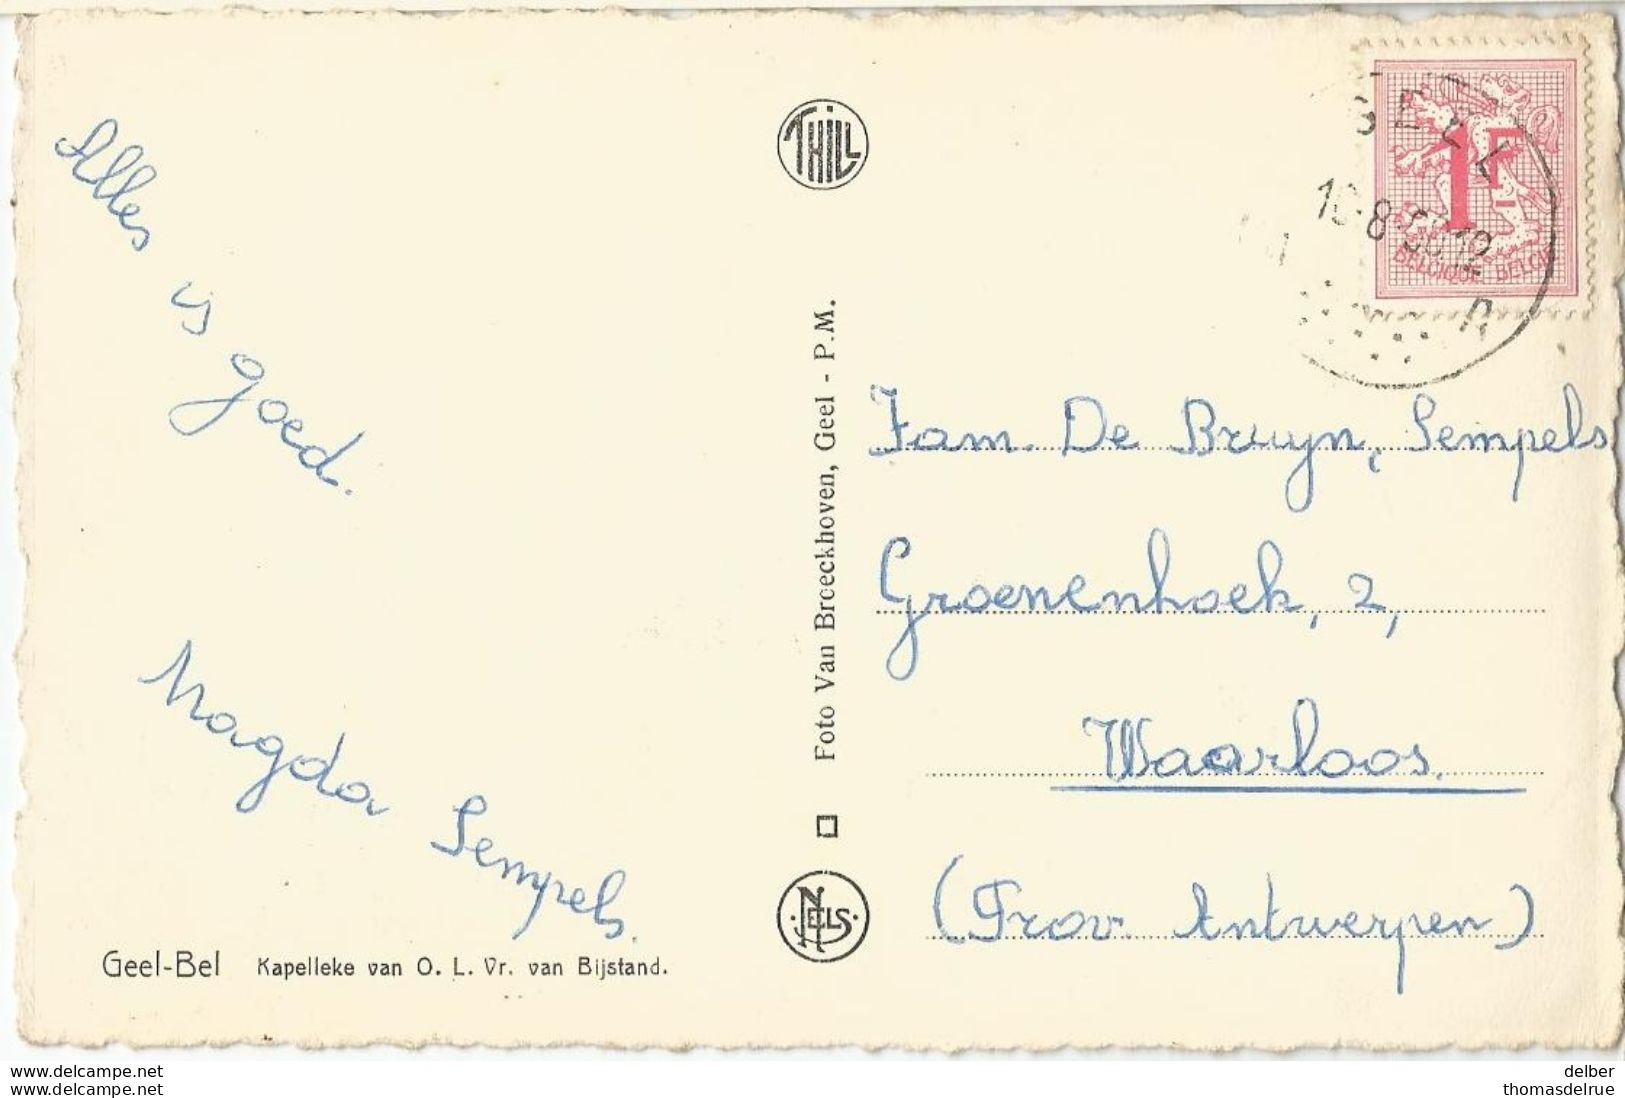 Alles
is
goed.
Magda
Sempels.
Geel-Bel Kapelleke van O. L. Vr. van Bijstand.
THILL
Foto Van Breeckhoven, Geel - P.M.
NELS
1F
BELGIQUE BELGIE
Fam. De Bruyn, Sempels
Groenenhoek, 2,
Waarloos.
(Prov. Antwerpen)
www.delcampe.net
www.delcampe.net
delber
thomasdelrue